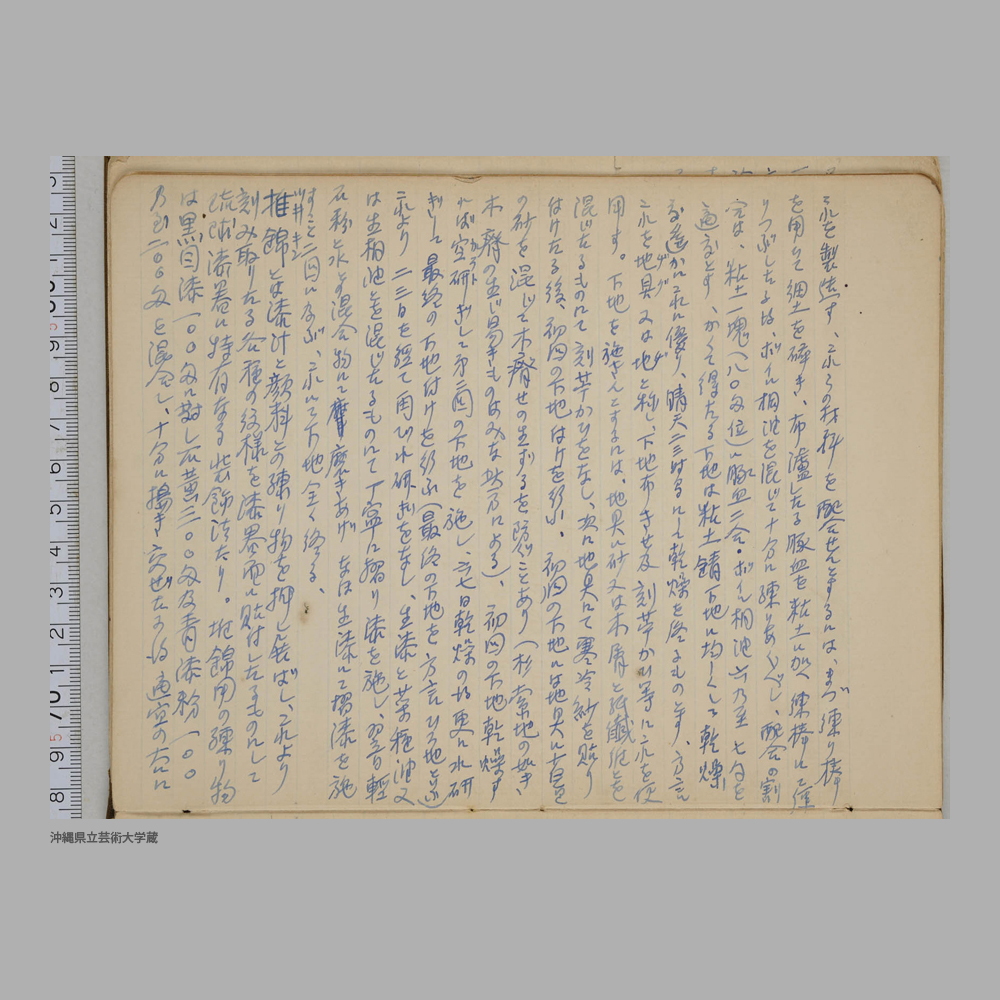 これを製造す、これらの材料を配合せんとするには、まづ練り棒
を用ひて細土を砕き、布濾したる豚血を粘土に加へ練棒にて
りつぶしたるは、ボイル桐油を混じて十分に練りあぐべし、配合の割
合は、粘土一塊(八〇匁位)に豚血二合・ボイル桐油六乃至七勺を
適度とす、かくて得たる下地は粘土錆下地に均しくして乾燥
遥かにこれに優り、晴天二三時間にして乾燥を終るものとす、方言
これを地具又は地と称し、下地布きせ及刻苧かひ等にこれを使
用す。下地を施さんとするには、地具に砂又は木屑と紙纖維とを
混じたるものにて刻苧かひをなし、次に地具にて寒冷紗を貼り
付けたる後、初回の下地付けを行ふ。初回の下地には地具に
の砂を混じて木瘠せの生ずるを防ぐことあり(杉素地の如き
木瘠の生じ易きものはみな此方による)、初回の下地乾燥す
れば空研ぎして第二回の下地を施し、六七日乾燥の後更に水研
ぎして最終の下地付けを行ふ(最終の下地を方言ひる地と云ふ
これより二三日を経て再び水研ぎをなし、生漆と菜種油又
は生桐油とを混じたるものにて丁寧に摺り漆を施し、翌日軽
石粉と水との混合物にて磨きあげ なほ生漆にて摺漆を施
すこと二回に及ぶ、これにて下地全く終る、
堆錦とは漆汁と顔料との練り物を押し展ばし、これより
刻み取りたる各種の紋様を漆器面に貼付したるものにして
琉球漆器に特有なる装飾法たり。堆錦用の練り物
は黒目漆一〇〇匁に対し石黄三〇〇匁及青漆粉一〇〇
乃至二〇〇匁を混合し、十分に搗き交ぜたる後適宜の大に